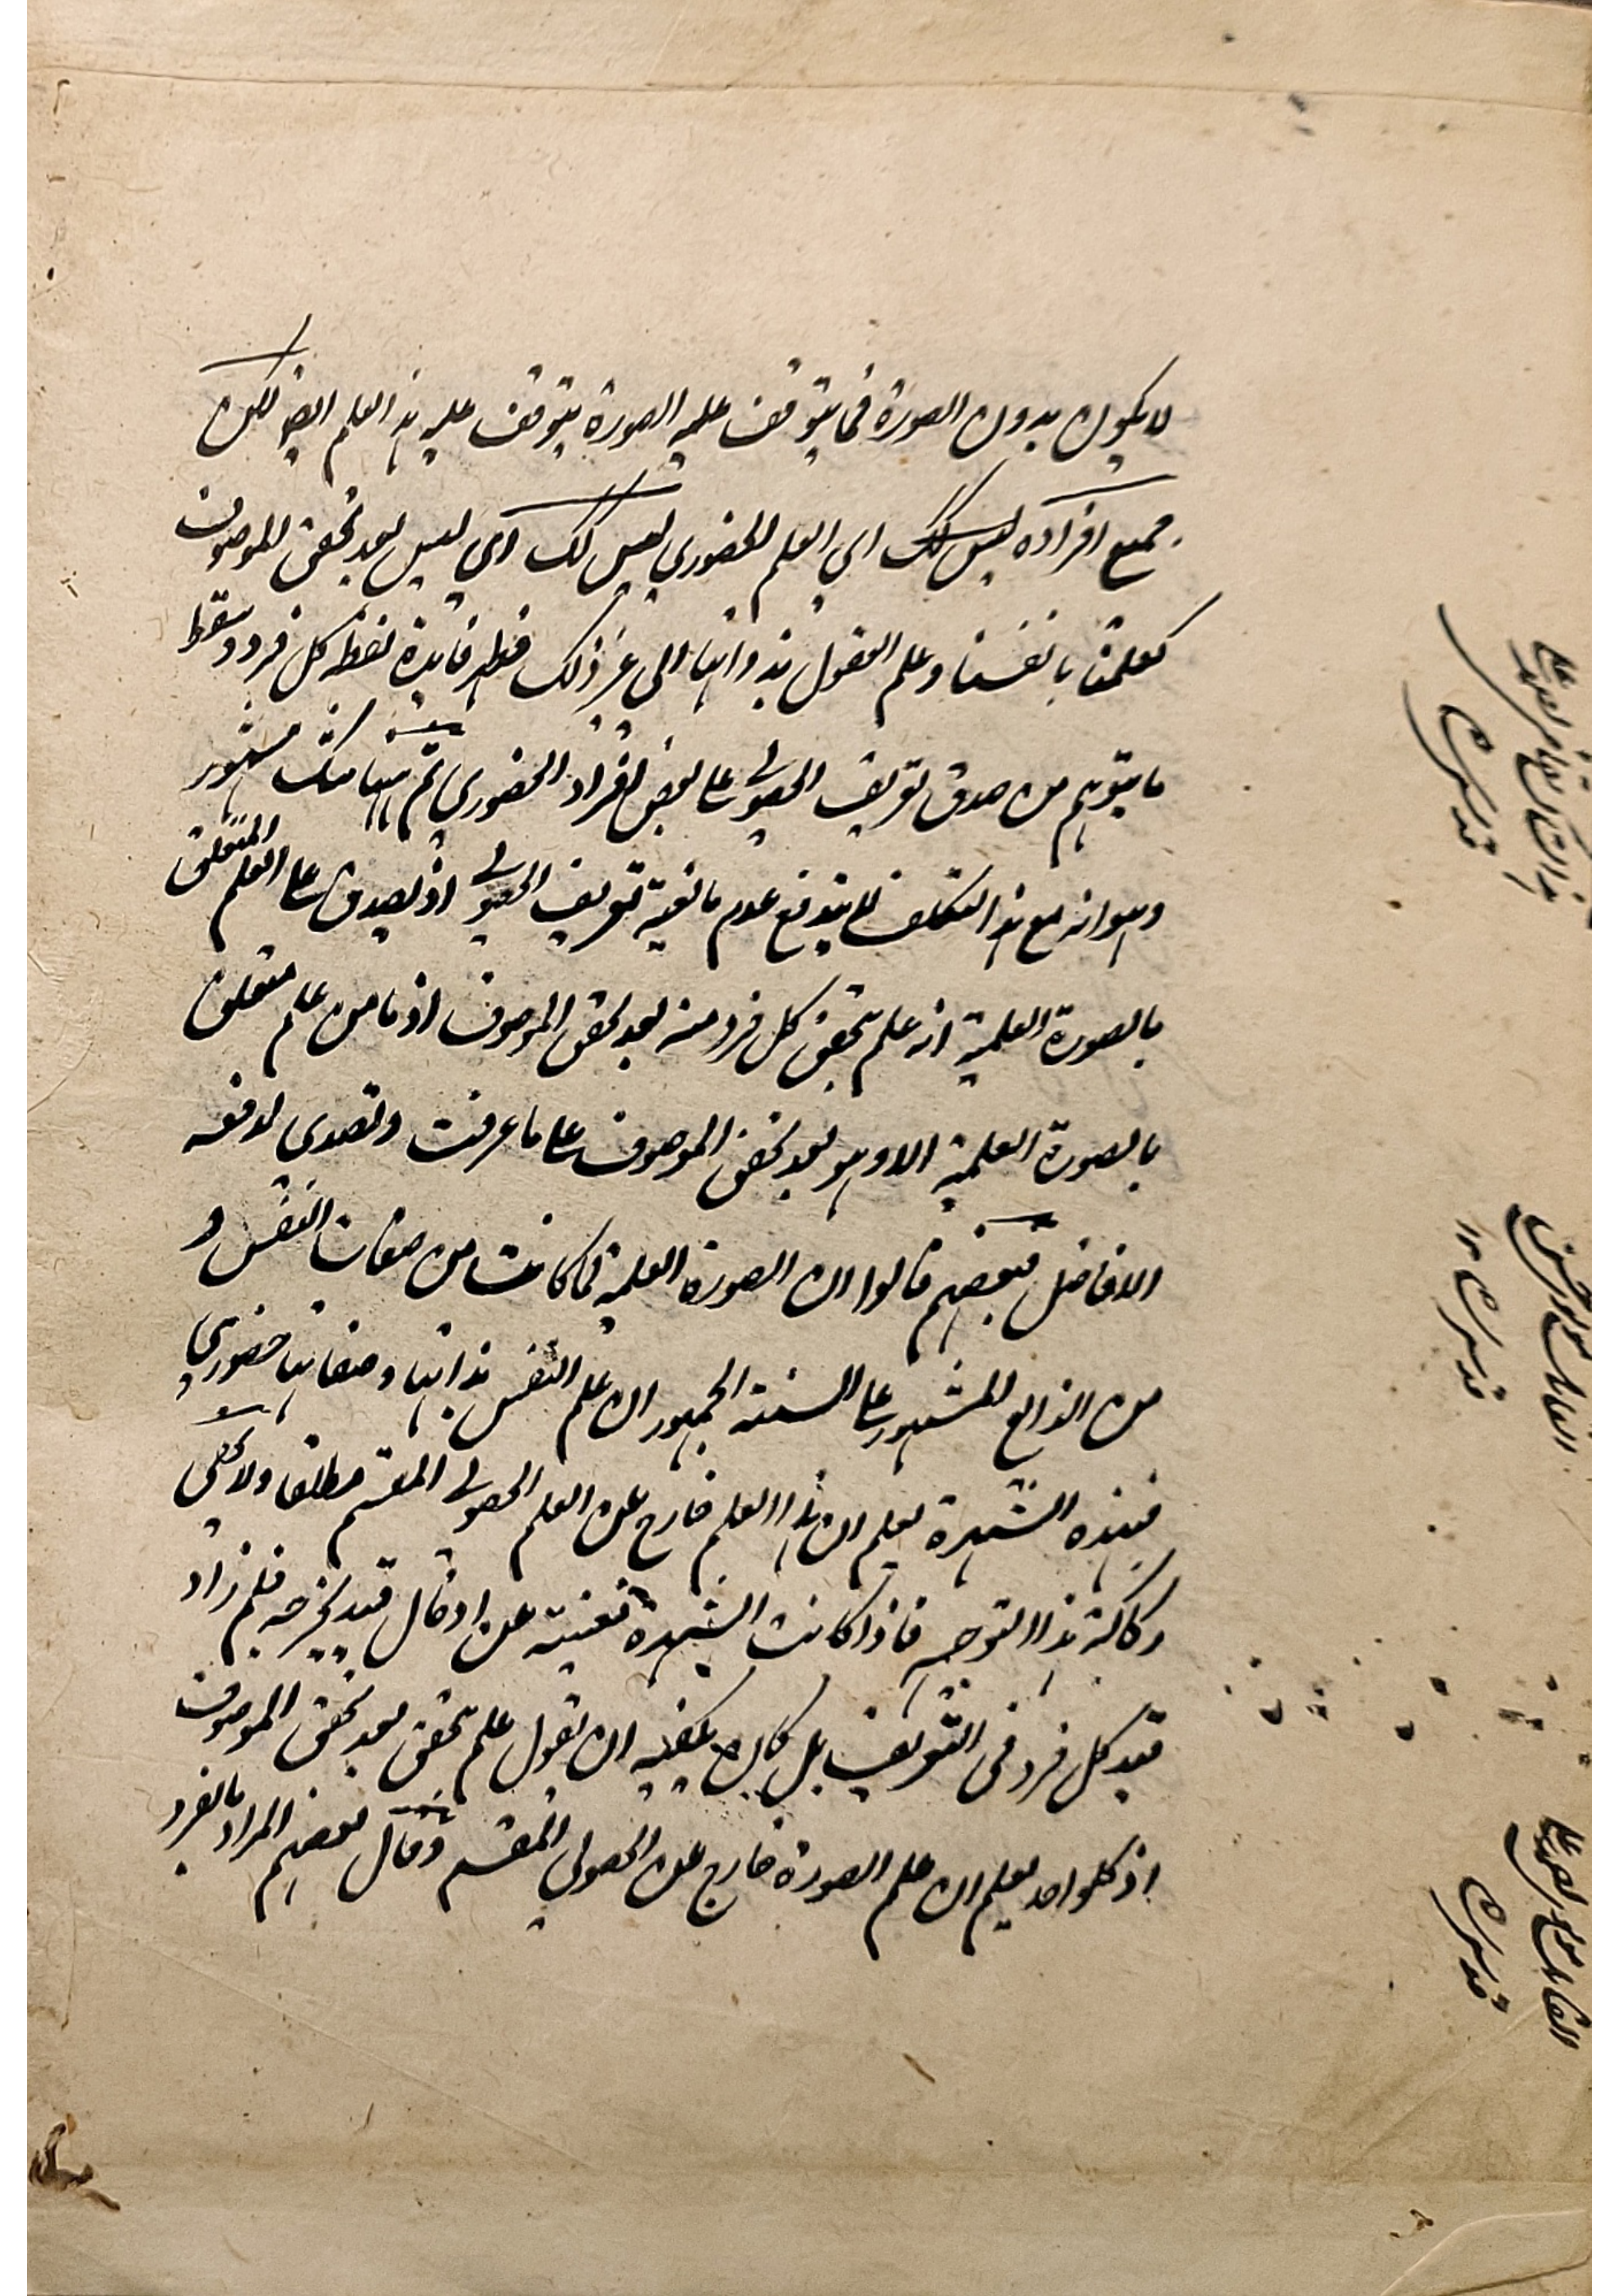 لا يكون بدون الصورة فما يتوقف عليه الصورة يتوقف عليه هذا العلم ايضا لكن
جميع افراده ليس كك اي العلم الحضوري ليس كك اي ليس بعد تحقق الموصوف
كعلمنا بانفسنا وعلم العقول بذواتها الى غير ذلك فظهر فايدة لفظة كل فرد وسقط
ما يتوهم من صدق تعريف الحصولي على بعض افراد الحضوري ثم ههنا شك مشهور
وهو انه مع هذا التكلف لا يندفع عدم مانعية تعريف الحصولي اذ يصدق على العلم المتعلق
بالصورة العلمية انه علم تحقق كل فرد منه بعد تحقق الموصوف اذ ما من علم متعلق
بالصورة العلمية الا وهو بعد تحقق الموصوف على ما عرفت وتصدى لدفعه
الافاضل فبعضهم قالوا ان الصورة العلمية لما كانت من صفات النفس و
من الذايع المشهور على السنة الجمهور ان علم النفس بذاتها وصفاتها حضوري
فبهذه الشهرة يعلم ان هذا العلم خارج عن العلم الحصولي المقسم مطلقا ولا يخفى
ركاكة هذا التوجيه فاذا كانت الشهرة مغنية عن ادخال قيد يخرجه فلم زاد
قيد كل فرد فى التعريف بل كان يكفيه ان يقول علم تحقق بعد تحقق الموصوف
اذ كلواحد يعلم ان علم الصورة خارج عن الحصولي المقسم وقال بعضهم المراد بالفرد
قدس سره
قدس سره
قدس سره